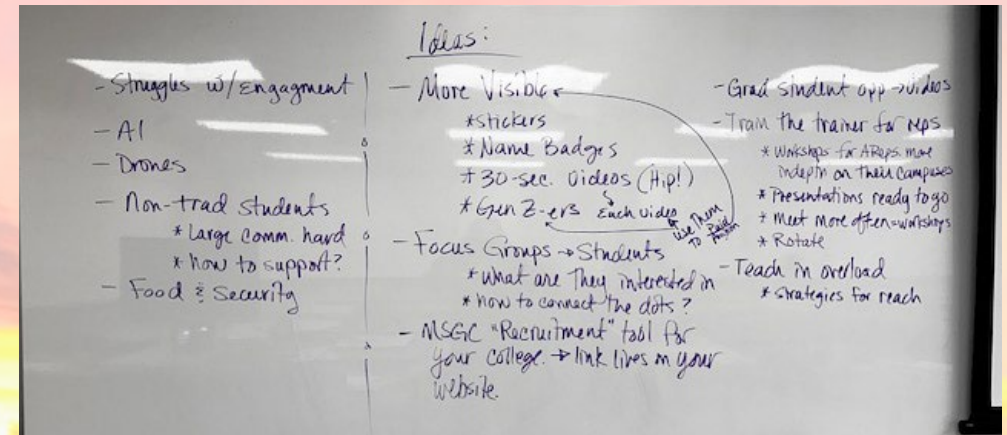 Ideas:
- Struggles w/ Engagment
- AI
- Drones
- Non-trad students
* Large comm. hard
* how to support?
- Food & Security
- More Visible
* stickers
* Name Badges
* 30-sec. Videos (Hip!)
* Gen Z-ers Each video
Use Them To Paid
- Focus Groups → Students
* what are They interested in
* how to connect the dots?
- MSGC "Recruitment" tool for
your college. → link lives on your
website.
- Grad student opp → videos
- Train the trainer for reps
* Workshops for AReps more
indepth on their campuses
* Presentations ready to go
* Meet more often = workshops
* Rotate
- Teach in overload
* strategies for reach